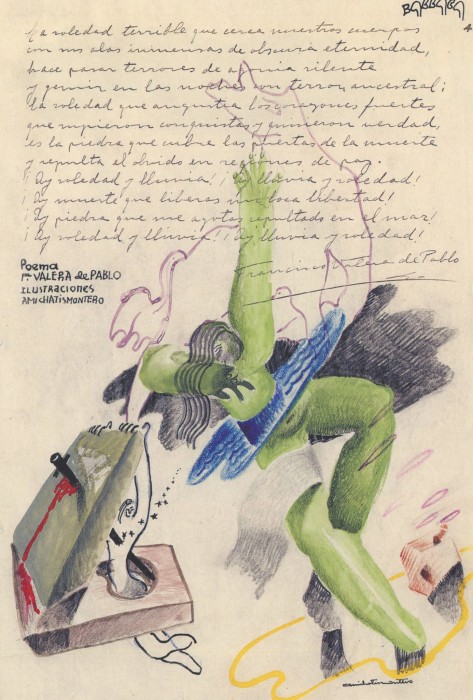 BARBARA
4
La soledad terrible que cerca nuestros cuerpos
con sus alas inmensas de obscura eternidad,
hace pasar terrores de agonía silente
y gemir en las noches con terror ancestral;
la soledad que angustia los corazones fuertes
que supieron conquistas y quisieron verdad,
es la piedra que cubre las puertas de la muerte
y sepulta el olvido en regiones de paz.
¡Ay soledad y lluvia! ¡Ay lluvia y soledad!
¡Ay muerte que liberas mi loca libertad!
¡Ay piedra que me agotas sepultado en el mar!
¡Ay soledad y lluvia! ¡Ay lluvia y soledad!
Francisco Valera de Pablo
Poema
Fco VALERA de PABLO
ILUSTRACIONES
AMICHATISMONTERO